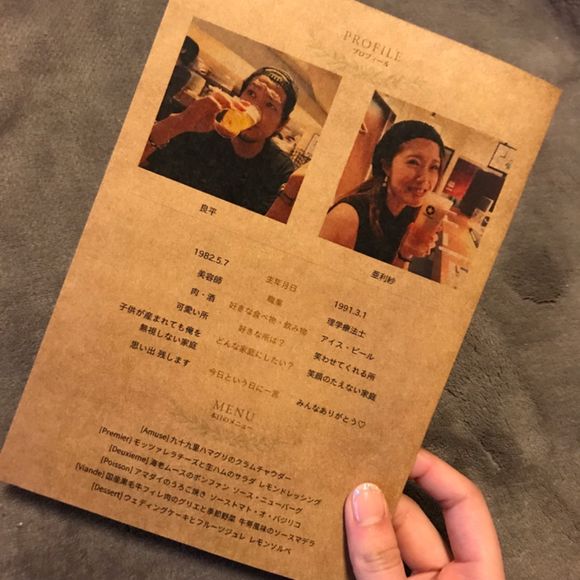 PROFILE
プロフィール
良平
亜利紗
1982.5.7 生年月日 1991.3.1
美容師 職業 理学療法士
肉・酒 好きな食べ物・飲み物 アイス・ビール
可愛い所 好きな所は? 笑わせてくれる所
子供が産まれても俺を
無視しない家庭 どんな家庭にしたい? 笑顔のたえない家庭
思い出 残します 今日という日に一言 みんなありがとう♡
MENU
本日のメニュー
[Amuse] 九十九里ハマグリのクラムチャウダー
[Premier] モッツァレラチーズと生ハムのサラダ レモンドレッシング
[Deuxieme] 海老ムースのボンファン ソース・ニューバーグ
[Poisson] アマダイのうろこ焼き ソーストマト・オ・バジリコ
[Viande] 国産黒毛牛フィレ肉のグリエと季節野菜 牛蒡風味のソースマデラ
[Dessert] ウェディングケーキとフルーツジュレ レモンソルベ